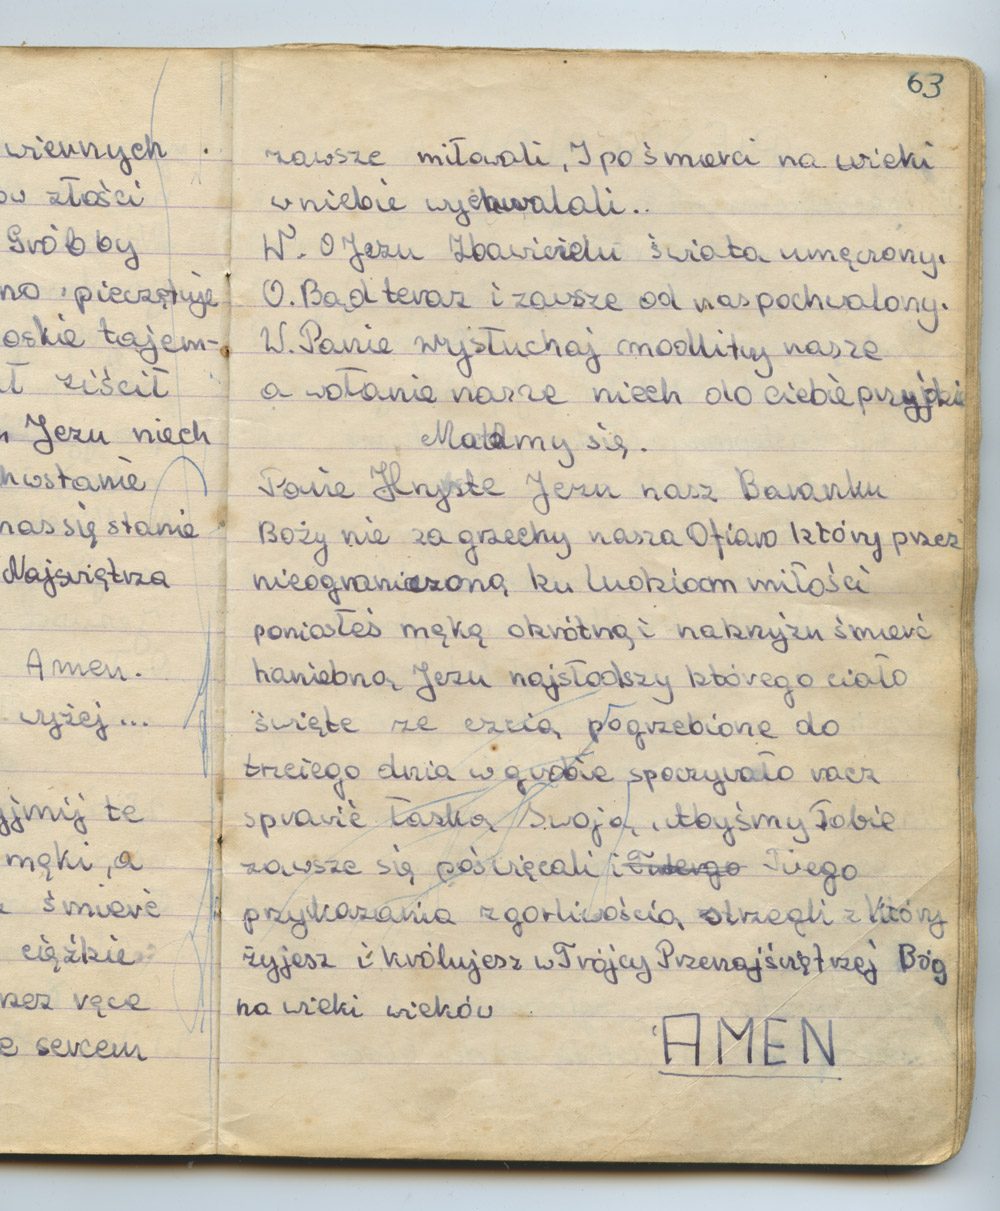 wiernych .
ów złości
Grób by
no pieczętuje
oskie tajem-
ił ziścił
Jezu niech
hwstanie
nas się stanie
Najświętrza
Amen.
wyżej...
yjmij te
męki, a
śmierć
ciężkie
rzez ręce
e sercem
63
zawsze miłowali, I po śmierci na wieki
w niebie wychwalali..
W. O Jezu Zbawicielu świata umęczony.
O. Bądź teraz i zawsze od nas pochwalony.
W. Panie wysłuchaj modlitwy nasze
a wołanie nasze niech do ciebie przyjdzie
Módlmy się.
Panie Hryste Jezu nasz Baranku
Boży nie za grzechy nasza Ofiaro który przez
nieograniczoną ku ludziom miłości
poniosłeś męką okrótną i na krzyżu śmierć
haniebną Jezu najsłodszy którego ciało
święte ze czcią pogrzebione do
trzeciego dnia w grobie spoczywało racz
sprawić łaską Swoją, Abyśmy Tobie
zawsze się poświęcali i Twego
przykazania z gorliwością strzegli z Który
żyjesz i królujesz w Trójcy Przenajświętrzej Bóg
na wieki wieków
AMEN